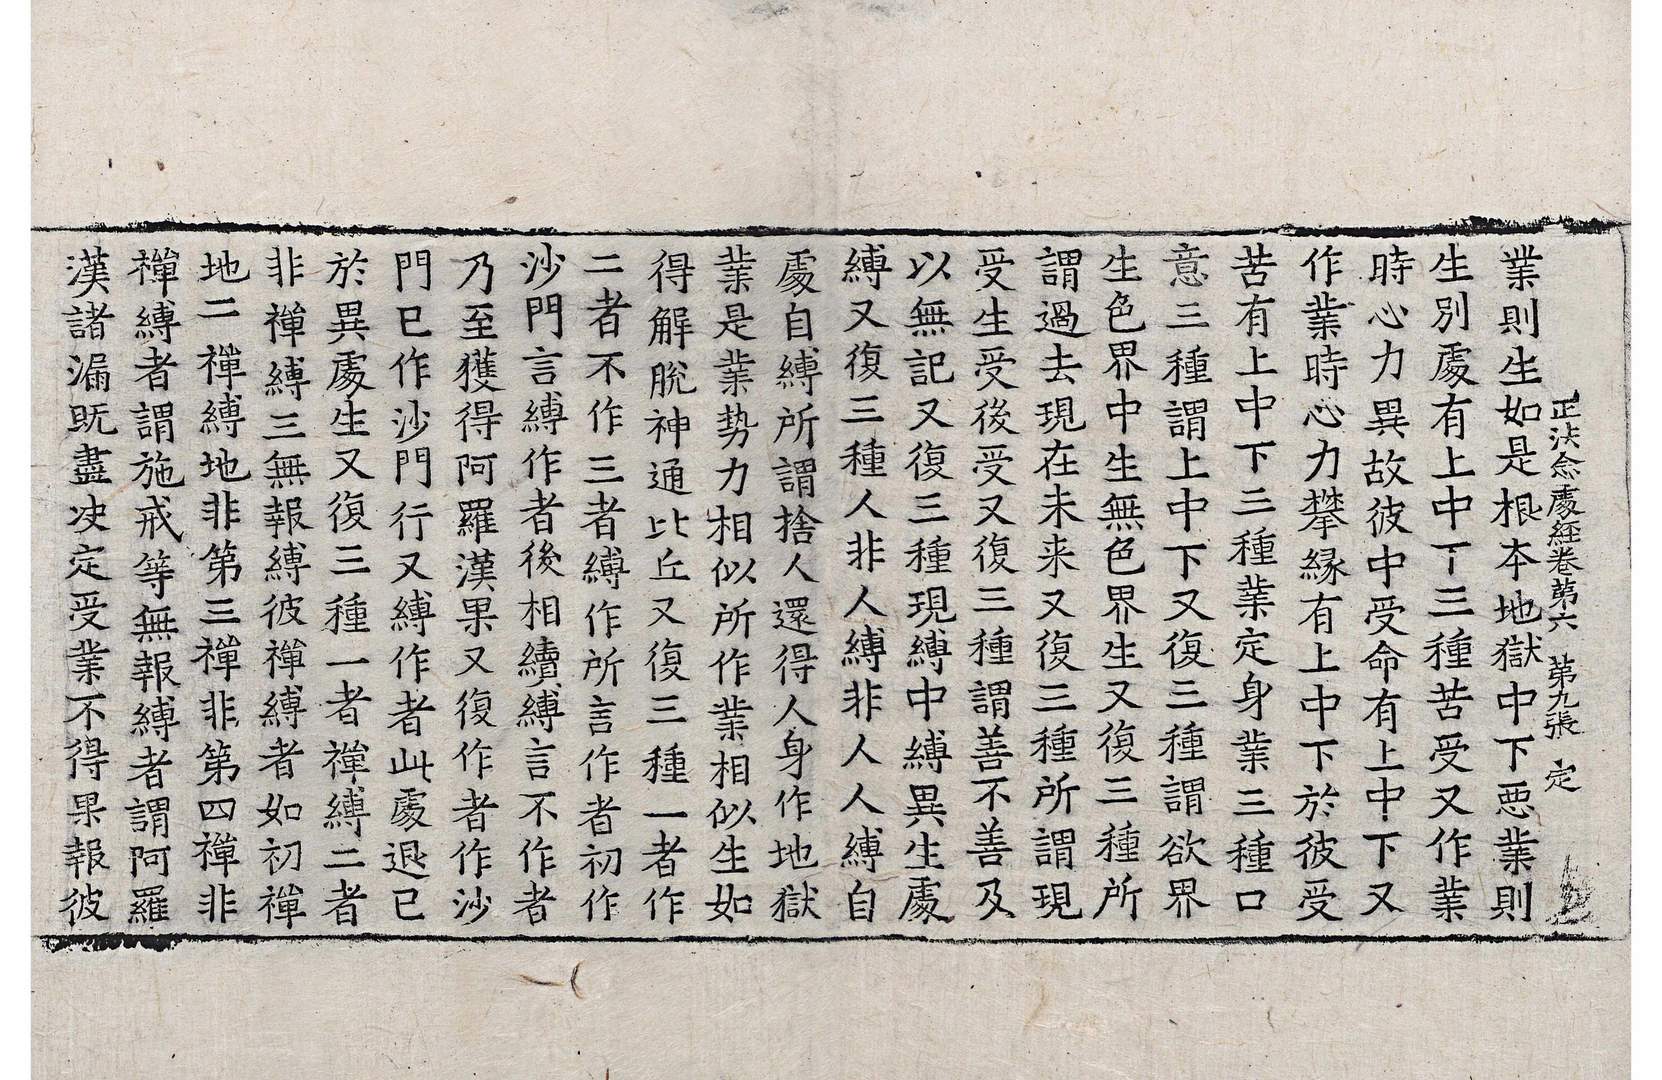 正法念處經卷第六 第九張 定
業則生如是根本地獄中下悪業則
生別處有上中下三種苦受又作業
時心力異故彼中受命有上中下又
作業時心力攀縁有上中下於彼受
苦有上中下三種業定身業三種口
意三種謂上中下又復三種謂欲界
生色界中生無色界生又復三種所
謂過去現在未来又復三種所謂現
受生受後受又復三種謂善不善及
以無記又復三種現縛中縛異生處
縛又復三種人非人縛非人人縛自
處自縛所謂捨人還得人身作地獄
業是業勢力相似所作業相似生如
得解脫神通比丘又復三種一者作
二者不作三者縛作所言作者初作
沙門言縛作者後相續縛言不作者
乃至獲得阿羅漢果又復作者作沙
門已作沙門行又縛作者此處退已
於異處生又復三種一者禪縛二者
非禪縛三無報縛彼禪縛者如初禪
地二禪縛地非第三禪非第四禪非
禪縛者謂施戒等無報縛者謂阿羅
漢諸漏既盡决定受業不得果報彼